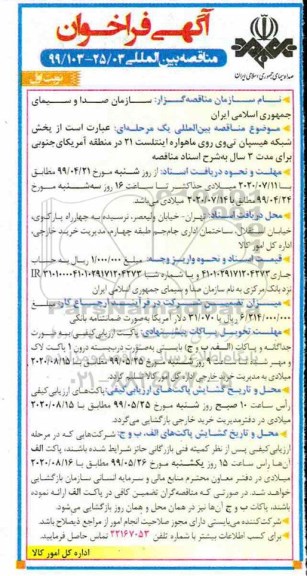 آگهی فراخوان
مناقصه بین‌المللی ۲۵/۰۳-۹۹/۱۰۳
نوبت اول
صدا و سیمای جمهوری اسلامی ایران
نام سازمان مناقصه‌گزار: سازمان صدا و سیمای
جمهوری اسلامی ایران
موضوع مناقصه بین‌المللی یک مرحله‌ای: عبارت است از پخش
شبکه هیسپان تی‌وی روی ماهواره اینتلست ۲۱ در منطقه آمریکای‌جنوبی
برای مدت ۳ سال به‌شرح اسناد مناقصه
مهلت و نحوه دریافت اسناد: از روز شنبه مورخ ۹۹/۰۴/۲۱ مطابق
با ۲۰۲۰/۰۷/۱۱ میلادی حداکثر تا ساعت ۱۶ روز سه‌شنبه مورخ
۹۹/۰۴/۲۴ مطابق با ۲۰۲۰/۰۷/۱۴ میلادی می‌باشد.
محل دریافت اسناد: تهران- خیابان ولیعصر، نرسیده به چهارراه پارک‌وی،
خیابان ساختمان اداری جام‌جم طبقه چهارم، مدیریت خرید خارجی،
اداره کل امور کالا
قیمت اسناد و نحوه واریز وجه: مبلغ ۱/۰۰۰/۰۰۰ ریال به حساب
جاری و یا شماره شبا IR
نزد بانک‌مرکزی به‌نام سازمان صدا و سیمای جمهوری اسلامی ایران
میزان تضمین شرکت در فرآیند ارجاع کار: مبلغ
ریال یا دلار آمریکا به‌صورت ضمانتنامه بانکی
مهلت تحویل پاکات پیشنهادی: پاکت ارزیابی‌کیفی به صورت
جداگانه و پاکات (الف، ب و ج) بایستی به‌صورت دربسته درون ۱ پاکت لاک
و مهر شده ۹۹/۰۵/۲۵ مطابق با ۲۰۲۰/۰۸/۱۵
میلادی به مدیریت خرید خارجی اداره کل امور کالا
محل و تاریخ گشایش پاکت‌های ارزیابی کیفی: پاکت‌های ارزیابی‌کیفی
رأس ساعت ۱۰ صبح روز شنبه مورخ ۹۹/۰۵/۲۵ مطابق با ۲۰۲۰/۰۸/۱۵
میلادی در دفترمدیریت خرید خارجی بازگشایی می‌گردد.
محل و تاریخ گشایش پاکت‌های الف، ب و ج: شرکت‌هایی که در مرحله
ارزیابی کیفی پس از نظر کمیته فنی بازرگانی حائز شرایط شناخته شده باشند، پاکت الف
آن‌ها رأس ساعت ۱۵ روز یکشنبه مورخ ۹۹/۰۵/۲۶ مطابق با ۲۰۲۰/۰۸/۱۶
میلادی در دفتر معاون محترم منابع مالی و سرمایه انسانی سازمان بازگشایی
خواهد شد. در صورتی که مناقصه‌گران تضمین کافی در پاکت الف ارائه نموده
باشند، پاکات ب و ج آن‌ها نیز در همان محل و همان روز بازگشایی می‌شود.
شرکت‌کننده می‌بایستی دارای مجوز صلاحیت انجام امور از مراجع ذیصلاح باشد.
برای کسب اطلاعات بیشتر با شماره تلفن ۲۲۱۶۷۰۵۳ تماس حاصل فرمایید.
اداره کل امور کالا